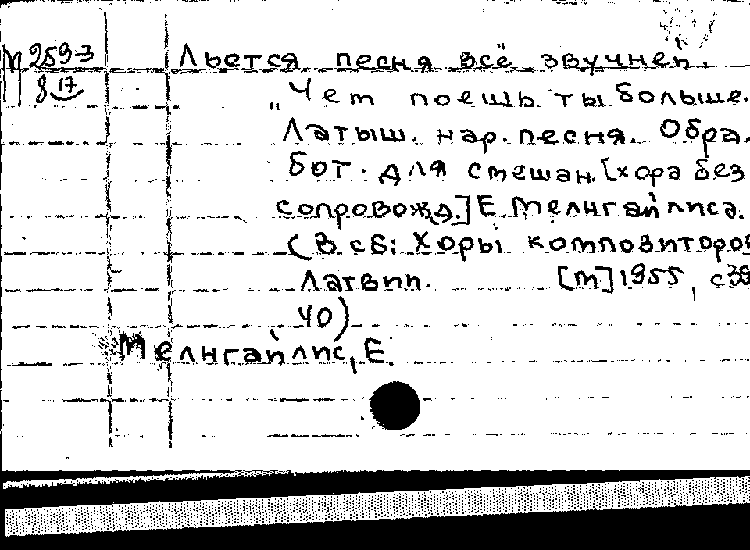 М 259-3 Льется песня всё звучней.
8 17 „Чем поешь ты больше.
Латыш. нар. песня. Обра.
бот. для смешан. [хора без
сопровожд.] Е. Мелнгайлиса.
(В сб: Хоры композиторов
Латвии. [М] 1955, с 39
40)
Мелнгайлис, Е.